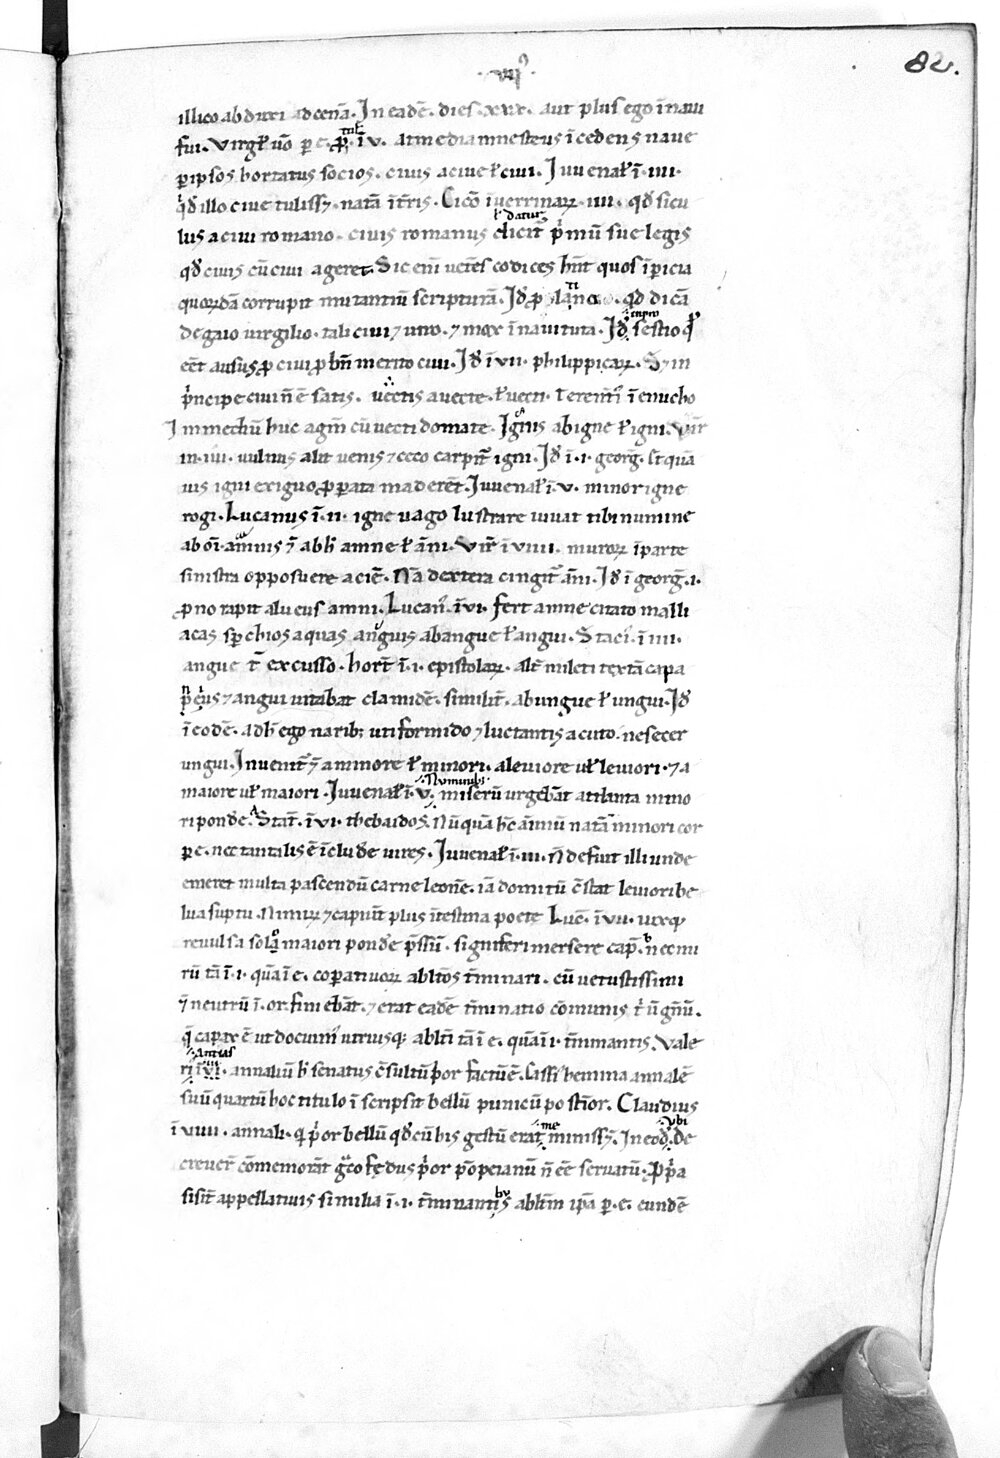 82.
·VII·
illico abduxi ad cenā. In eadē. dies .xxx. aut plus ego ī naui
fui. Virgł. ū̊o p e. ꝓ. ī v. at media mnesteus ī cedens naue
ꝑ ipsos hortatus socios. ciuis a ciue ł ciui. Iuuenał ī. iiii.
qd̄ illo ciue tulissꝫ. natā ī tr̄is. Cicō ī uerrinaꝝ. iiii. qd̄ sicu
lus a ciui romano. ciuis romanus dicit̄ p̄mū sue legis
ł datur
qd̄ ciuis cū ciui ageret. Sic eni ueteēs codices hn̄t quos īpicia
quorūdā corrupit mutantiū scripturā. Id̄ ꝓ lanci. qd̄ dicā
de gaio uirgilio. tali ciui ⁊ uiro. ⁊ mox ī naui tuta. Id̄ sestio q̄
eēt ausus ꝓ ciui ꝓ bn̄ merito ciui. Id̄ ī vii. philippicaꝝ. Sꝫ in
p̄ncipe ciui n̄ ē satis. uectis a uecte. ł uecti. Terentī ī enucho
In mediū huc agm̄ cū uecti donate. Ignis ab igne ł igni. Vir̄
in. iiii. vulnus alit uenis ⁊ ceco carpit̄ igni. Id̄ ī. i. georḡ. st quā
uis igni exiguo ꝓperata maderēt. Iuuenał ī. v. minor igne
rogi. Lucanus ī. ii. igne uago lustrare uiuat tibi numine
ab oī. amnis ⁊̄ ab h̄ amne ł āni. Vir̄ ī viiii. muroꝝ ī parte
sinistra opposuere aciē. Nā dextera cingit̄ āni. Id̄ ī georḡ. i.
ꝓno rapit alueus amni. Lucan̄. ī vi. fert amne citato malli
acas sperchios aquas anguis ab angue ł angui. Staci. ī iiii.
angue t̄ excusso. hort̄ ī. i. epistolaꝝ. alt̄ mileti textā cane
peius ⁊ angui uitabat clamidē. similit̄. ab ungue ł ungui. Id̄
ī eodē. ad h̄ ego narib; uti formido ⁊ luctantis acuto. ne secer
ungui. Inuenit̄ ⁊̄ a minore ł minori. a leuiore uł leuiori. ⁊ a
maiore uł maiori. Iuuenał ī. v. miserū urgebāt atlanta mino
·Numinibꝰ·
ri ponde. Stat̄. ī vi. thebaidos. Nū quā hc̄ aīmū natā minori cor
pe. nec tantalis ē īclude uires. Iuuenał ī. iii. N̄ defuit illi unde
emeret multa pascendū carne leonē. iā domitū c̄stat leuiori be
lua suptu. Nimiꝝ ⁊ capiūt plus ītestina poete Luc̄. ī vii. utꝫqꝫ
reuulsa sola maiori ponde p̄ssū. signiferi mersere cap̄. n̄ cenu
rū tā ī. i. quā ī e. copatiuoꝝ ablt̄os t̄minari. cū uetustissimi
⁊̄ neutrū ī. or. finiebāt. ⁊ erat eadē t̄minatio cōmunis t̄ū gn̄ū.
q̄ capax ē ut docuim̄ utriusqꝫ ablt̄i tā ī e. quā ī i. t̄minantis. Vale
·Antias
ri ī vi. annaliū h̄ senatus c̄sultū p̄or factū ē. Cassi hemina annalē
suū quartū hoc titulo ī scripsit bellū punicū postīor. Claudius
ī viiii. annali. qꝫ p̄or bellū qd̄ cū his gestū erat minissꝫ. In eod̄. de
me
ubi
creuer̄ cōmemorāt gr̄co fędus p̄or pōpeianū n̄ eē seruatū. Pp̄a
sisit̄ appellatiuis similia ī. i. t̄minantis ablt̄m ip̄a p. e. eundē
bꝰ